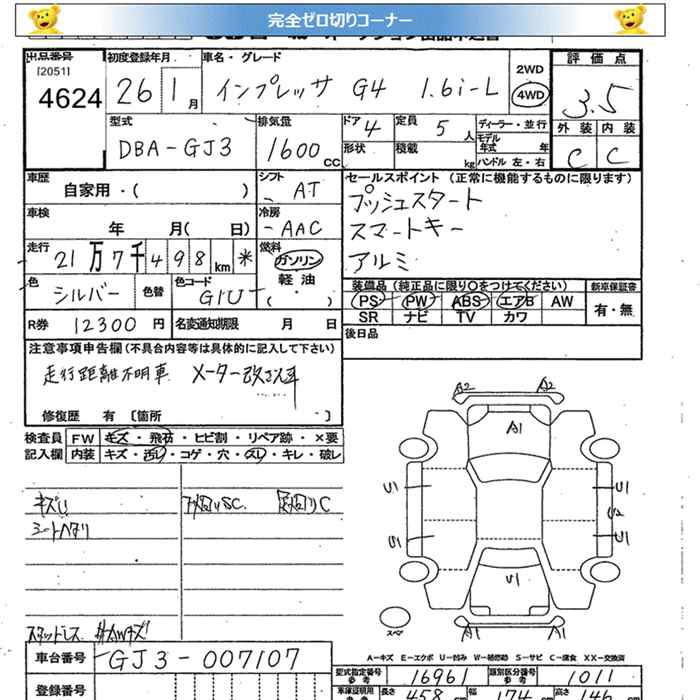 完全ゼロ切りコーナー
出品番号 初度登録年月 車名・グレード 2WD 評価点
[2051]
4624 26 1月 インプレッサ G4 1.6i-L 4WD 3.5
型式 排気量 ドア 定員 ディーラー・並行 外装 内装
DBA-GJ3 1600cc 4 5人 モデル年式 年 C C
形状 積載 kg ハンドル 左・右
車歴 シフト セールスポイント (正常に機能するものに限ります)
自家用・( ) AT プッシュスタート
車検 冷房 スマートキー
年 月( 日) AAC アルミ
走行 燃料
21万7千498km * ガソリン
軽油
( ・ )
色 色替 色コード 装備品 (純正品に限り○をつけてください) 新車保証書
シルバー G1U PS PW ABS エアB AW 有・無
SR ナビ TV カワ
R券 12300円 名変通知期限 月 日 後日品
注意事項申告欄 (不具合内容等は具体的に記入して下さい)
走行距離不明車 メーター改ざん車
修復歴 有 [箇所 ]
検査員 FW キズ・飛石・ヒビ割・リペア跡・×要
記入欄 内装 キズ・汚レ・コゲ・穴・スレ・キレ・破レ
キズU 下廻りSC
シートヘタリ
スタッドレス
車台番号 GJ3-007107
登録番号
A2 A2
A1
U1 U1
U2
U1 U1
U1
A1 A1
スペア
A－キズ E－エクボ U－凹み W－補修跡 S－サビ C－腐食 XX－交換済
型式指定番号 参考 16961 類別区分番号 参考 1011
車庫証明用 参考 長さ 458 幅 174 高さ 146